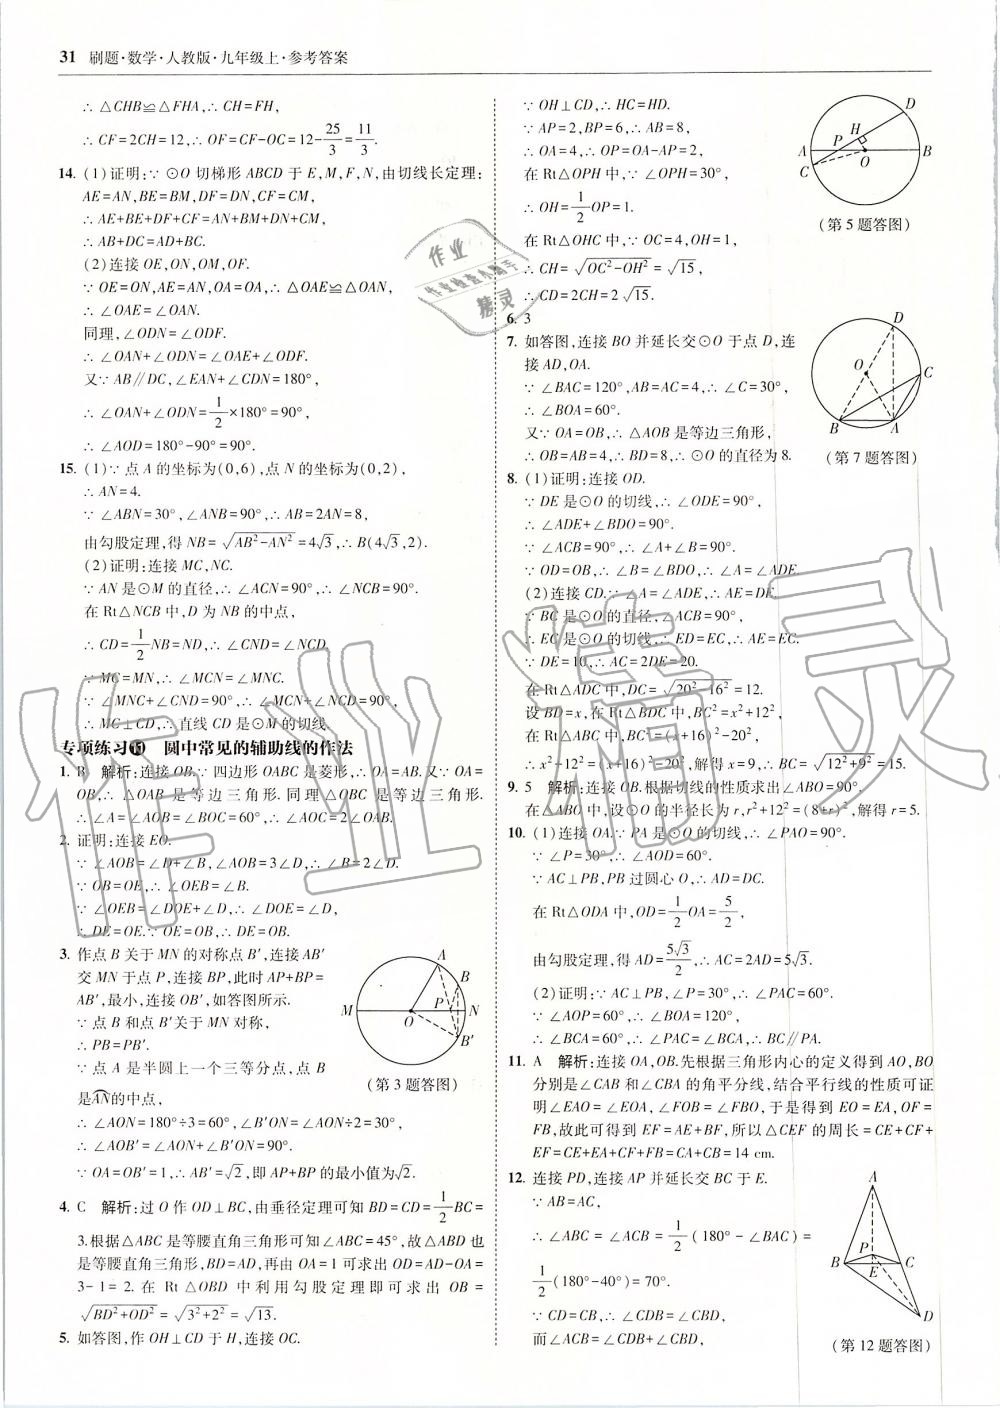 31 刷题·数学·人教版·九年级上·参考答案
∴ △CHB≌△FHA,∴ CH=FH,
∴ CF=2CH=12,∴ OF=CF-OC=12-25/3=11/3.
14. (1)证明:∵ ⊙O 切梯形 ABCD 于 E,M,F,N,由切线长定理:
AE=AN,BE=BM,DF=DN,CF=CM,
∴ AE+BE+DF+CF=AN+BM+DN+CM,
∴ AB+DC=AD+BC.
(2)连接 OE,ON,OM,OF.
∵ OE=ON,AE=AN,OA=OA,∴ △OAE≌△OAN,
∴ ∠OAE=∠OAN.
同理,∠ODN=∠ODF.
∴ ∠OAN+∠ODN=∠OAE+∠ODF.
又∵ AB∥DC,∠EAN+∠CDN=180°,
∴ ∠OAN+∠ODN=1/2×180°=90°,
∴ ∠AOD=180°-90°=90°.
15. (1)∵ 点 A 的坐标为(0,6),点 N 的坐标为(0,2),
∴ AN=4.
∵ ∠ABN=30°,∠ANB=90°,∴ AB=2AN=8,
由勾股定理,得 NB=√(AB²-AN²)=4√3,∴ B(4√3,2).
(2)证明:连接 MC,NC.
∵ AN 是⊙M 的直径,∴ ∠ACN=90°,∴ ∠NCB=90°.
在 Rt△NCB 中,D 为 NB 的中点,
∴ CD=1/2NB=ND,∴ ∠CND=∠NCD.
∵ MC=MN,∴ ∠MCN=∠MNC.
∵ ∠MNC+∠CND=90°,∴ ∠MCN+∠NCD=90°,
∴ MC⊥CD,∴ 直线 CD 是⊙M 的切线.
专项练习⓫ 圆中常见的辅助线的作法
1. B 解析:连接 OB.∵ 四边形 OABC 是菱形,∴ OA=AB.又∵ OA=
OB,∴ △OAB 是等边三角形.同理△OBC 是等边三角形.
∴ ∠A=∠AOB=∠BOC=60°,∴ ∠AOC=2∠OAB.
2. 证明:连接 EO.
∵ ∠AOB=∠D+∠B,∠AOB=3∠D,∴ ∠B=2∠D.
∵ OB=OE,∴ ∠OEB=∠B.
∵ ∠OEB=∠DOE+∠D,∴ ∠DOE=∠D,
∴ DE=OE.∵ OE=OB,∴ DE=OB.
3. 作点 B 关于 MN 的对称点 B′,连接 AB′
交 MN 于点 P,连接 BP,此时 AP+BP=
AB′,最小,连接 OB′,如答图所示.
∵ 点 B 和点 B′关于 MN 对称,
∴ PB=PB′.
∵ 点 A 是半圆上一个三等分点,点 B
是A͡N的中点,
∴ ∠AON=180°÷3=60°,∠B′ON=∠AON÷2=30°,
∴ ∠AOB′=∠AON+∠B′ON=90°.
∵ OA=OB′=1,∴ AB′=√2,即 AP+BP 的最小值为√2.
A
B
M
O
P
N
B′
(第 3 题答图)
4. C 解析:过 O 作 OD⊥BC,由垂径定理可知 BD=CD=1/2BC=
3.根据△ABC 是等腰直角三角形可知∠ABC=45°,故△ABD 也
是等腰直角三角形,BD=AD,再由 OA=1 可求出 OD=AD-OA=
3-1=2.在 Rt△OBD 中利用勾股定理即可求出 OB=
√(BD²+OD²)=√(3²+2²)=√13.
5. 如答图,作 OH⊥CD 于 H,连接 OC.
∵ OH⊥CD,∴ HC=HD.
∵ AP=2,BP=6,∴ AB=8,
∴ OA=4,∴ OP=OA-AP=2.
在 Rt△OPH 中,∵ ∠OPH=30°,
∴ OH=1/2OP=1.
在 Rt△OHC 中,∵ OC=4,OH=1,
∴ CH=√(OC²-OH²)=√15,
∴ CD=2CH=2√15.
D
H
P
A
O
B
C
(第 5 题答图)
6. 3
7. 如答图,连接 BO 并延长交⊙O 于点 D,连
接 AD,OA.
∵ ∠BAC=120°,AB=AC=4,∴ ∠C=30°,
∴ ∠BOA=60°.
又∵ OA=OB,∴ △AOB 是等边三角形,
∴ OB=AB=4,∴ BD=8,∴ ⊙O 的直径为 8.
D
O
C
B
A
(第 7 题答图)
8. (1)证明:连接 OD.
∵ DE 是⊙O 的切线,∴ ∠ODE=90°,
∴ ∠ADE+∠BDO=90°.
∵ ∠ACB=90°,∴ ∠A+∠B=90°.
∵ OD=OB,∴ ∠B=∠BDO,∴ ∠A=∠ADE.
(2)连接 CD.∵ ∠A=∠ADE,∴ AE=DE.
∵ BC 是⊙O 的直径,∠ACB=90°,
∴ EC 是⊙O 的切线,∴ ED=EC,∴ AE=EC.
∵ DE=10,∴ AC=2DE=20.
在 Rt△ADC 中,DC=√(20²-16²)=12.
设 BD=x,在 Rt△BDC 中,BC²=x²+12²,
在 Rt△ABC 中,BC²=(x+16)²-20²,
∴ x²+12²=(x+16)²-20²,解得 x=9,∴ BC=√(12²+9²)=15.
9. 5 解析:连接 OB.根据切线的性质求出∠ABO=90°.
在△ABO 中,设⊙O 的半径长为 r,r²+12²=(8+r)²,解得 r=5.
10. (1)连接 OA.∵ PA 是⊙O 的切线,∴ ∠PAO=90°.
∵ ∠P=30°,∴ ∠AOD=60°.
∵ AC⊥PB,PB 过圆心 O,∴ AD=DC.
在 Rt△ODA 中,OD=1/2OA=5/2,
由勾股定理,得 AD=5√3/2,∴ AC=2AD=5√3.
(2)证明:∵ AC⊥PB,∠P=30°,∴ ∠PAC=60°,
∵ ∠AOP=60°,∴ ∠BOA=120°,
∴ ∠BCA=60°,∴ ∠PAC=∠BCA,∴ BC∥PA.
11. A 解析:连接 OA,OB.先根据三角形内心的定义得到 AO,BO
分别是∠CAB 和∠CBA 的角平分线,结合平行线的性质可证
明∠EAO=∠EOA,∠FOB=∠FBO,于是得到 EO=EA,OF=
FB,故此可得到 EF=AE+BF,所以△CEF 的周长=CE+CF+
EF=CE+EA+CF+FB=CA+CB=14 cm.
12. 连接 PD,连接 AP 并延长交 BC 于 E.
∵ AB=AC,
∴ ∠ABC=∠ACB=1/2(180°-∠BAC)=
1/2(180°-40°)=70°.
∵ CD=CB,∴ ∠CDB=∠CBD,
而∠ACB=∠CDB+∠CBD,
A
B
P
E
C
D
(第 12 题答图)
作业
作业检查小助手
精灵
作业精灵